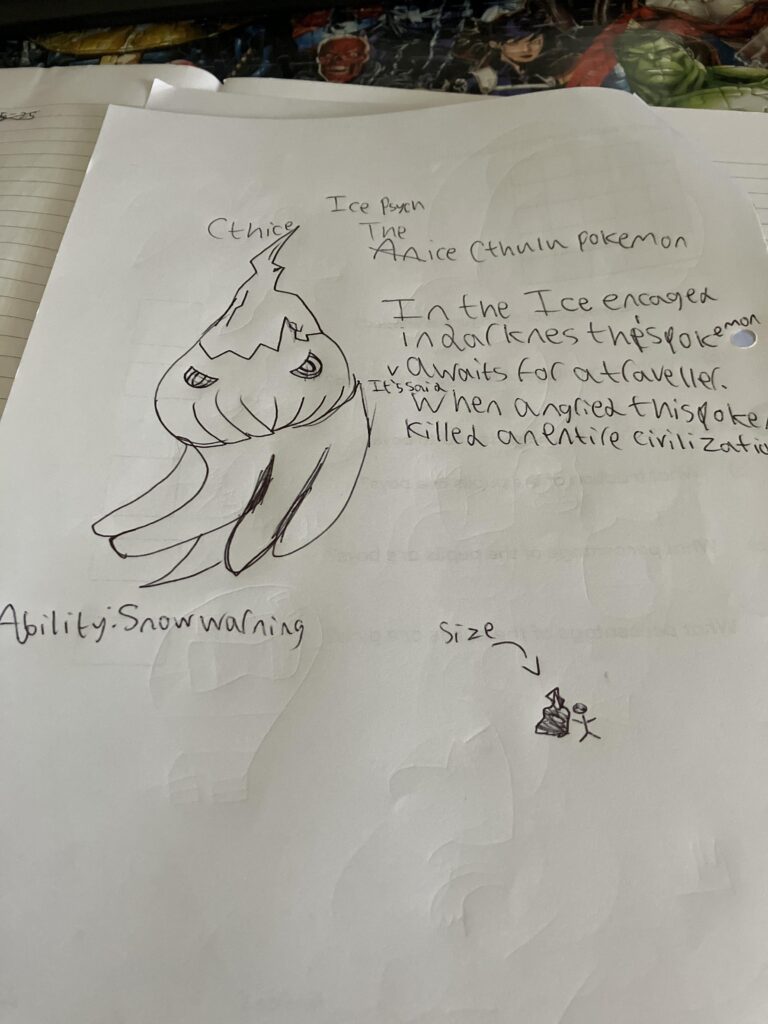 Ice Psych
Cthice
The
An ice Cthulu pokemon
In the Ice encaged
in darknes this pokemon
awaits for a traveller.
It's said
When angried this poke
killed an entire civilizatio
Ability: Snow warning
Size